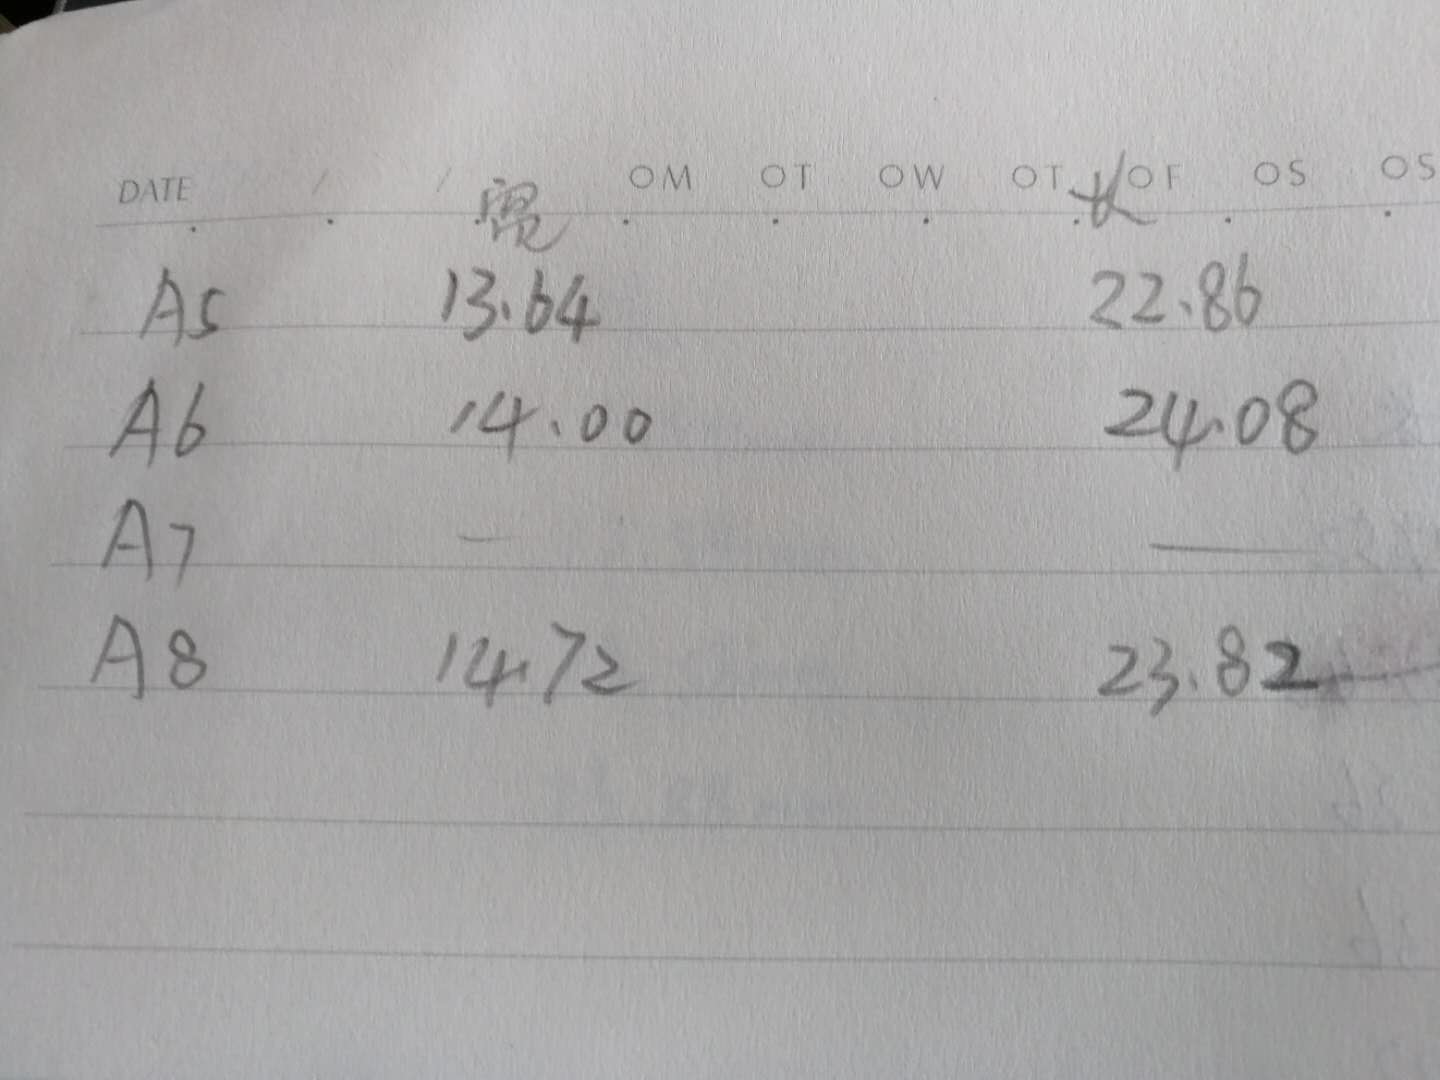 DATE / / OM OT OW OT OF OS OS
宽 长
A5 13.64 22.86
A6 14.00 24.08
A7 — —
A8 14.72 23.82